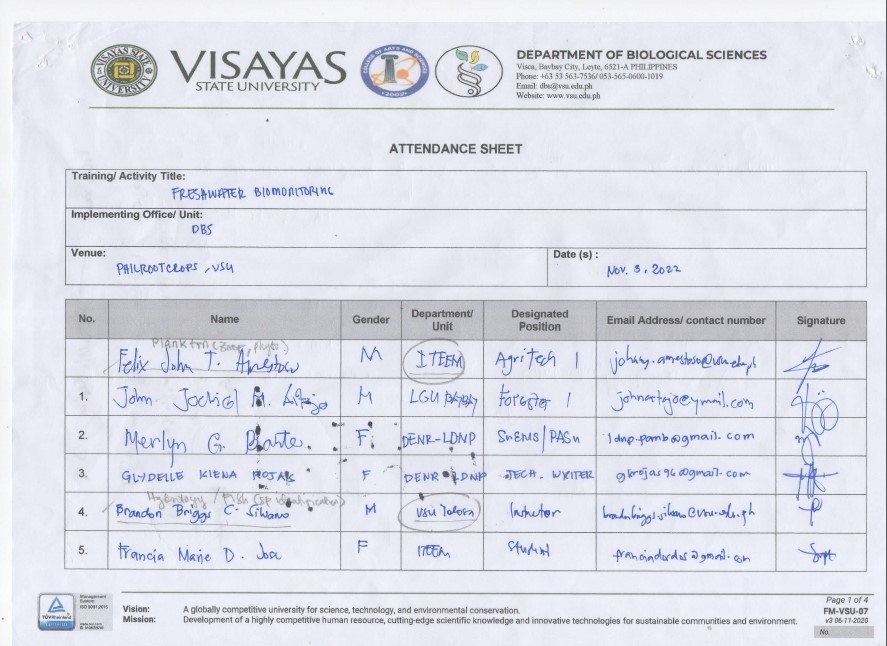 VISAYAS STATE UNIVERSITY
VISAYAS
STATE UNIVERSITY
COLLEGE OF ARTS AND SCIENCES
2002
DEPARTMENT OF BIOLOGICAL SCIENCES
Visca, Baybay City, Leyte, 6521-A PHILIPPINES
Phone: +63 53 563-7536/ 053-565-0600-1019
Email: dbs@vsu.edu.ph
Website: www.vsu.edu.ph
ATTENDANCE SHEET
Training/ Activity Title:
FRESHWATER BIOMONITORING
Implementing Office/ Unit:
DBS
Venue: Date (s) :
PHILROOTCROPS, VSU Nov. 3, 2022
No. Name Gender Department/ Unit Designated Position Email Address/ contact number Signature
Plankton (Zoo, phyto)
Felix John T. M ITEEM Agritech 1
1. John M. M LGU Forester 1 johnartajo@ymail.com
2. Merlyn G. F DENR-LDNP SrEMS/PASu ldnp.pamb@gmail.com
3. GLYDELLE KIENA ROJAS F DENR LDNP TECH. WRITER gkrojas96@gmail.com
Hydrology / Fish (sp identification)
4. Brandon Briggs C. Silvano M VSU Tolosa Instructor
5. Francia Marie D. Jose F ITEEM Student
Management System
ISO 9001:2015
TÜVRheinland
CERTIFIED
Vision: A globally competitive university for science, technology, and environmental conservation.
Mission: Development of a highly competitive human resource, cutting-edge scientific knowledge and innovative technologies for sustainable communities and environment.
Page 1 of 4
FM-VSU-07
v3 06-11-2020
No.